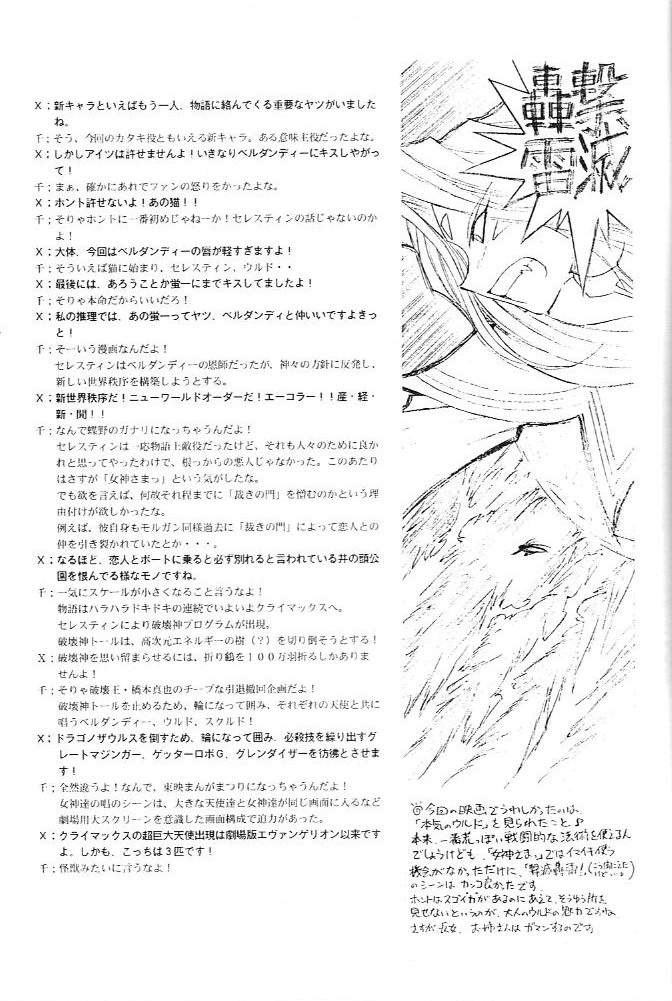 X：新キャラといえばもう一人、物語に絡んでくる重要なヤツがいました
ね。
千：そう、今回のカタキ役ともいえる新キャラ。ある意味主役だったよな。
X：しかしアイツは許せませんよ！いきなりベルダンディーにキスしやがっ
て！
千：まぁ、確かにあれでファンの怒りをかったよな。
X：ホント許せないよ！あの猫！！
千：そりゃホントに一番初めじゃねーか！セレスティンの話じゃないのか
よ！
X：大体、今回はベルダンディーの唇が軽すぎますよ！
千：そういえば猫に始まり、セレスティン、ウルド・・
X：最後には、あろうことか螢一にまでキスしてましたよ！
千：そりゃ本命だからいいだろ！
X：私の推理では、あの螢一ってヤツ、ベルダンディと仲いいですよきっ
と！
千：そーいう漫画なんだよ！
セレスティンはベルダンディーの恩師だったが、神々の方針に反発し、
新しい世界秩序を構築しようとする。
X：新世界秩序だ！ニューワールドオーダーだ！エーコラー！！産・経・
新・聞！！
千：なんで蝶野のガナリになっちゃうんだよ！
セレスティンは一応物語上敵役だったけど、それも人々のために良か
れと思ってやったわけで、根っからの悪人じゃなかった。このあたり
はさすが「女神さまっ」という気がしたな。
でも欲を言えば、何故それ程までに「裁きの門」を憎むのかという理
由付けが欲しかったな。
例えば、彼自身もモルガン同様過去に「裁きの門」によって恋人との
仲を引き裂かれていたとか・・・。
X：なるほど、恋人とボートに乗ると必ず別れると言われている井の頭公
園を恨んでる様なモノですね。
千：一気にスケールが小さくなること言うなよ！
物語はハラハラドキドキの連続でいよいよクライマックスへ。
セレスティンにより破壊神プログラムが出現。
破壊神トールは、高次元エネルギーの樹（？）を切り倒そうとする！
X：破壊神を思い留まらせるには、折り鶴を１００万羽折るしかありま
せんよ！
千：そりゃ破壊王・橋本真也のチープな引退撤回企画だよ！
破壊神トールを止めるため、輪になって囲み、それぞれの天使と共に
唱うベルダンディー、ウルド、スクルド！
X：ドラゴノザウルスを倒すため、輪になって囲み、必殺技を繰り出すグ
レートマジンガー、ゲッターロボG、グレンダイザーを彷彿とさせま
す！
千：全然違うよ！なんで、東映まんがまつりになっちゃうんだよ！
女神達の唱のシーンは、大きな天使達と女神達が同じ画面に入るなど
劇場用大スクリーンを意識した画面構成で迫力があった。
X：クライマックスの超巨大天使出現は劇場版エヴァンゲリオン以来です
よ。しかも、こっちは３匹です！
千：怪獣みたいに言うなよ！
撃滅
轟雷
今回の映画でうれしかったのは、
「本気のウルド」を見られたこと♪
本来、一番荒っぽい戦闘的な法術を使える
でしょうけども、「女神さまっ」ではイマイチ使う
機会がなかっただけに、「撃滅轟雷！」
のシーンは カッコ良かったです。
ホントはスゴイ力があるのにあえて、そうゆう所を
見せないというのが、大人のウルドの魅力ですよね
さすが長女、お姉さんは ガマンするのです